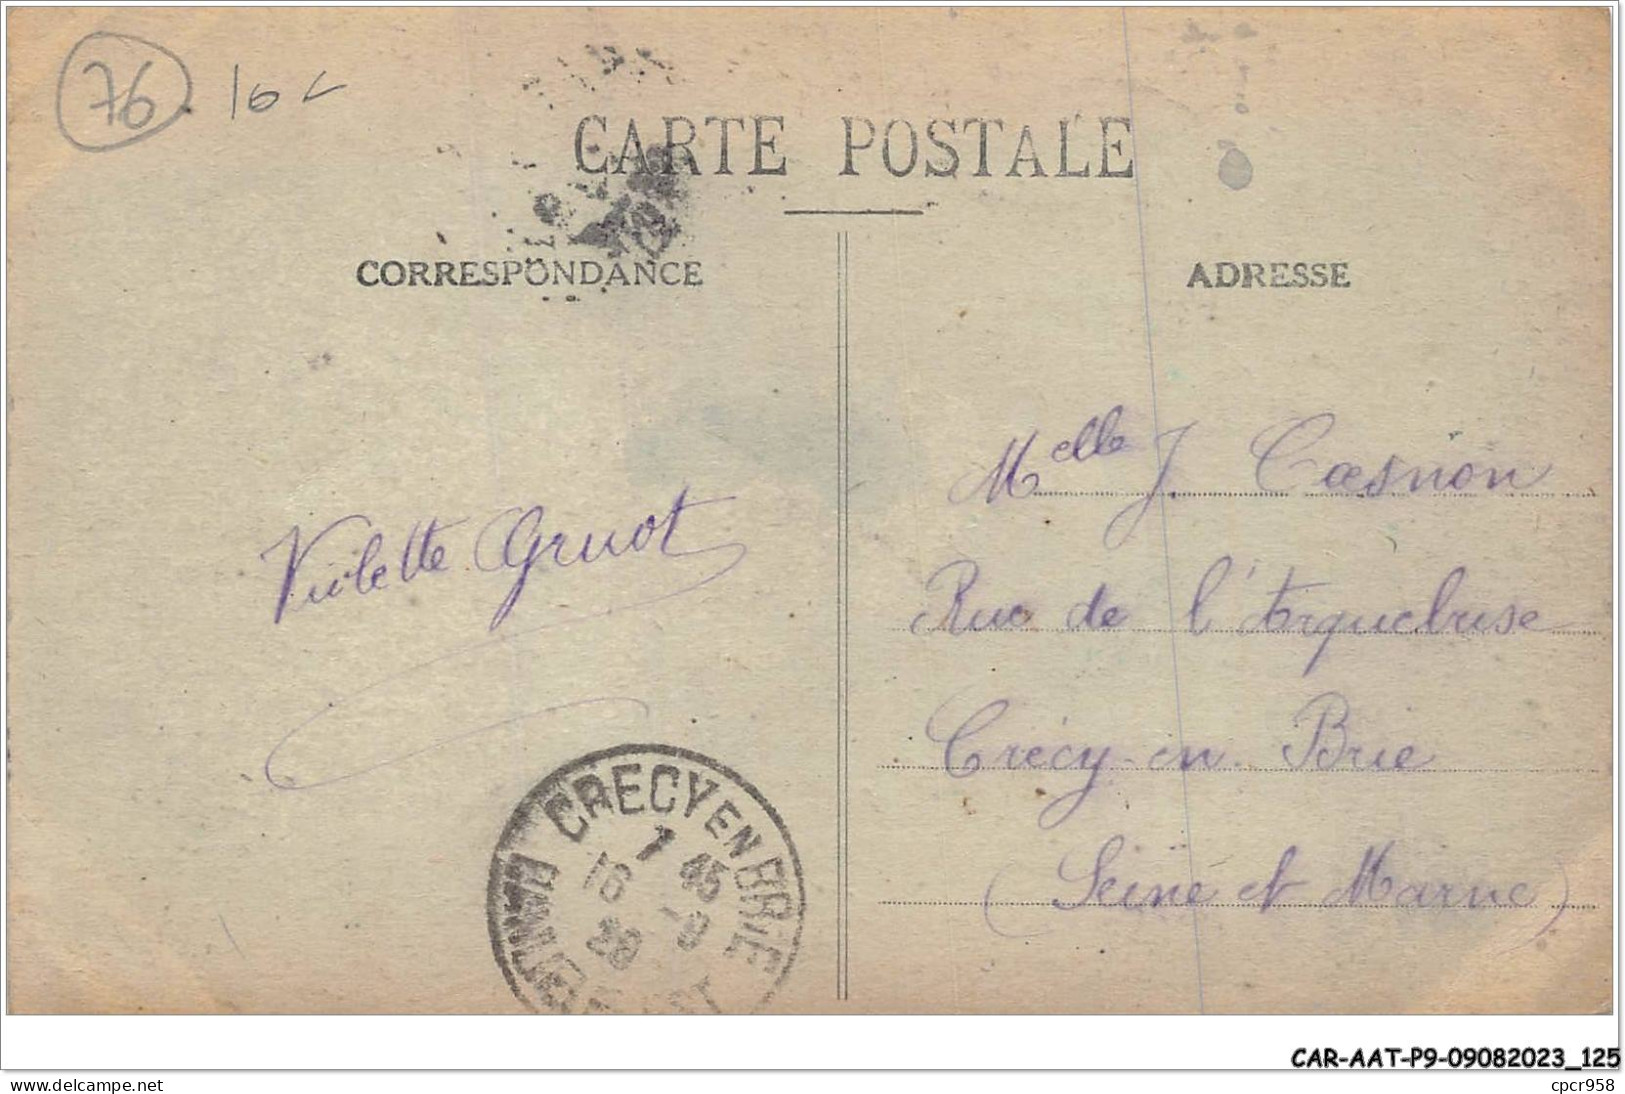 76 10
CARTE POSTALE
CORRESPONDANCE
ADRESSE
Melle J. Caesnon
Violette Gruot
Rue de l'Arquebuse
Crécy-en-Brie
(Seine et Marne)
CRECY EN BRIE
7 45
16
CAR-AAT-P9-09082023_125
www.delcampe.net
cpcr958